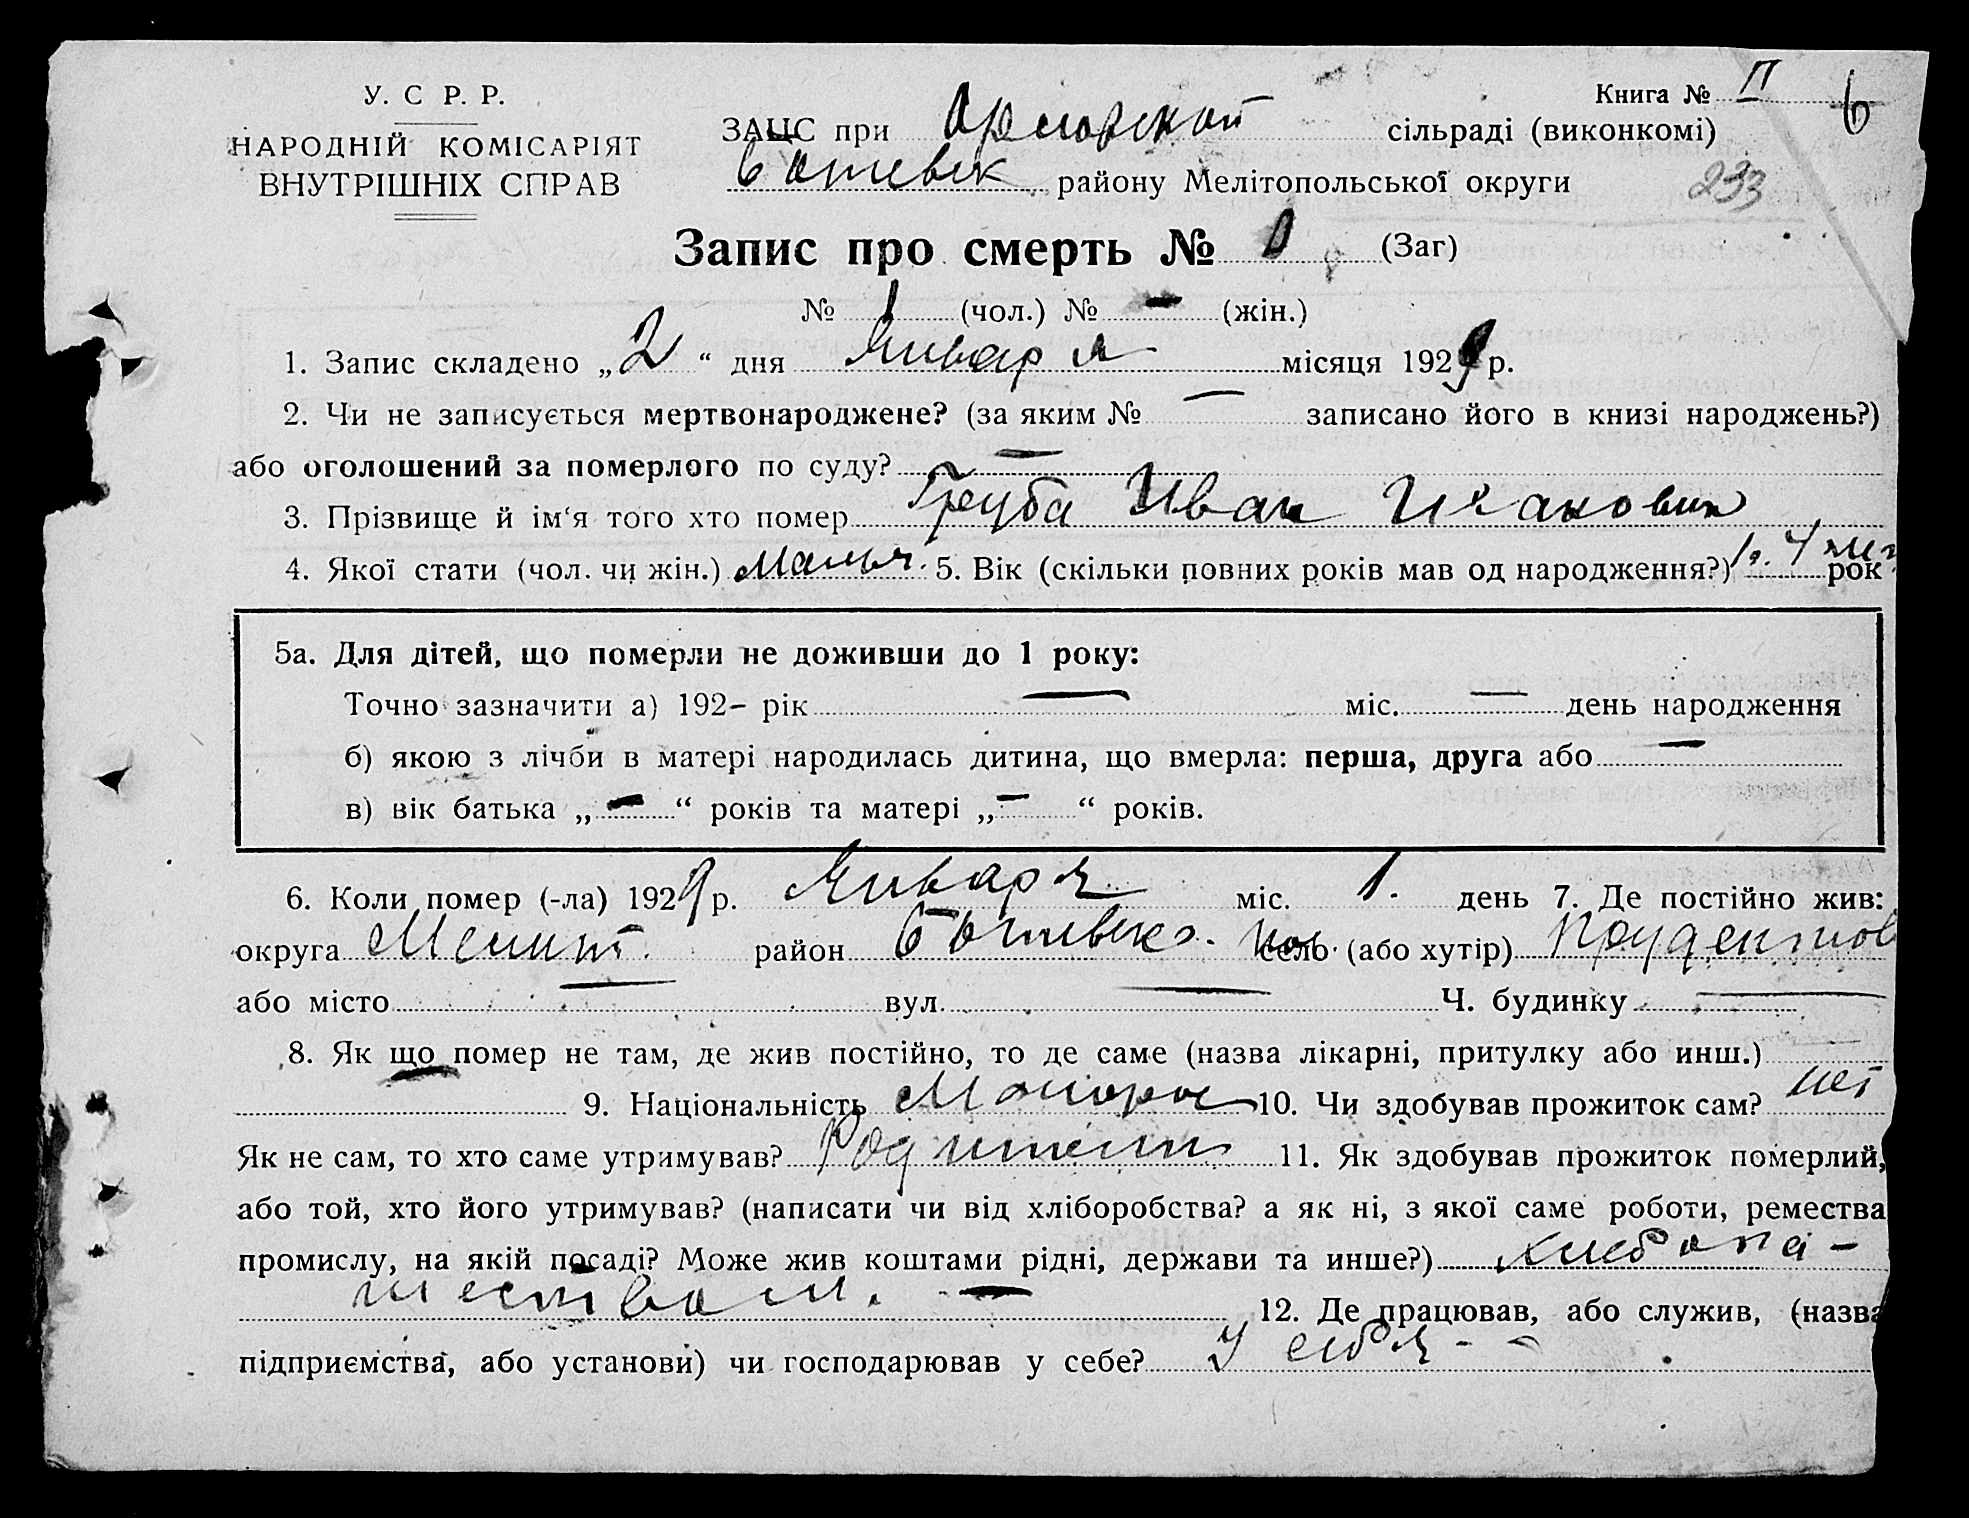 У. С Р. Р.
НАРОДНІЙ КОМІСАРІЯТ
ВНУТРІШНІХ СПРАВ
Книга № II 6
ЗАЦС при Орловской сільраді (виконкомі)
Ботиевск району Мелітопольської округи
233
Запис про смерть № 1 (Заг)
№ 1 (чол.) № – (жін.)
1. Запис складено „2“ дня Января місяця 1929 р.
2. Чи не записується мертвонароджене? (за яким № — записано його в книзі народжень?)
або оголошений за померлого по суду? —
3. Прізвище й ім‘я того хто помер Груба Иван Иванович
4. Якої стати (чол. чи жін.) Мальч. 5. Вік (скільки повних років мав од народження?) 1 г. 4 рок
5а. Для дітей, що померли не доживши до 1 року:
Точно зазначити а) 192– рік — міс. — день народження
б) якою з лічби в матері народилась дитина, що вмерла: перша, друга або —
в) вік батька „–“ років та матері „–“ років.
6. Коли помер (-ла) 1929 р. Января міс. 1. день 7. Де постійно жив:
округа Мелит. район Ботиевск. село (або хутір)
або місто — вул. — Ч. будинку —
8. Як що помер не там, де жив постійно, то де саме (назва лікарні, притулку або инш.) —
— 9. Національність Малорос 10. Чи здобував прожиток сам? нет
Як не сам, то хто саме утримував? Родители 11. Як здобував прожиток померлий,
або той, хто його утримував? (написати чи від хліборобства? а як ні, з якої саме роботи, ремества
промислу, на якій посаді? Може жив коштами рідні, держави та инше?) хлебопа-
шеством. — 12. Де працював, або служив, (назва
підприємства, або установи) чи господарював у себе? У себя - -